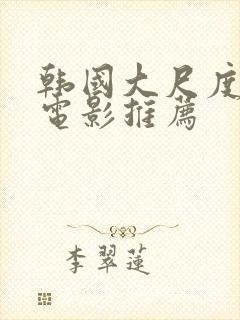 韩國大尺度
電影推薦
李翠蓮